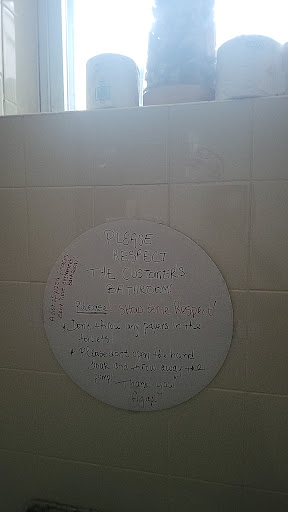 PLEASE
RESPECT
THE CUSTOMER'S
BATHROOM
Please! Show some Respect!
* Don't throw any papers in the
toilets
* Please don't open the hand
soap and throw away the
pump
Thank you